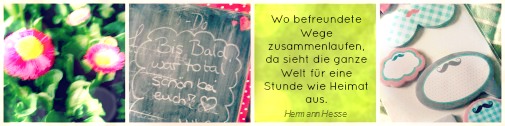 Bis Bald
war total
schön bei
euch!
Wo befreundete
Wege
zusammenlaufen,
da sieht die ganze
Welt für eine
Stunde wie Heimat
aus.
Hermann Hesse